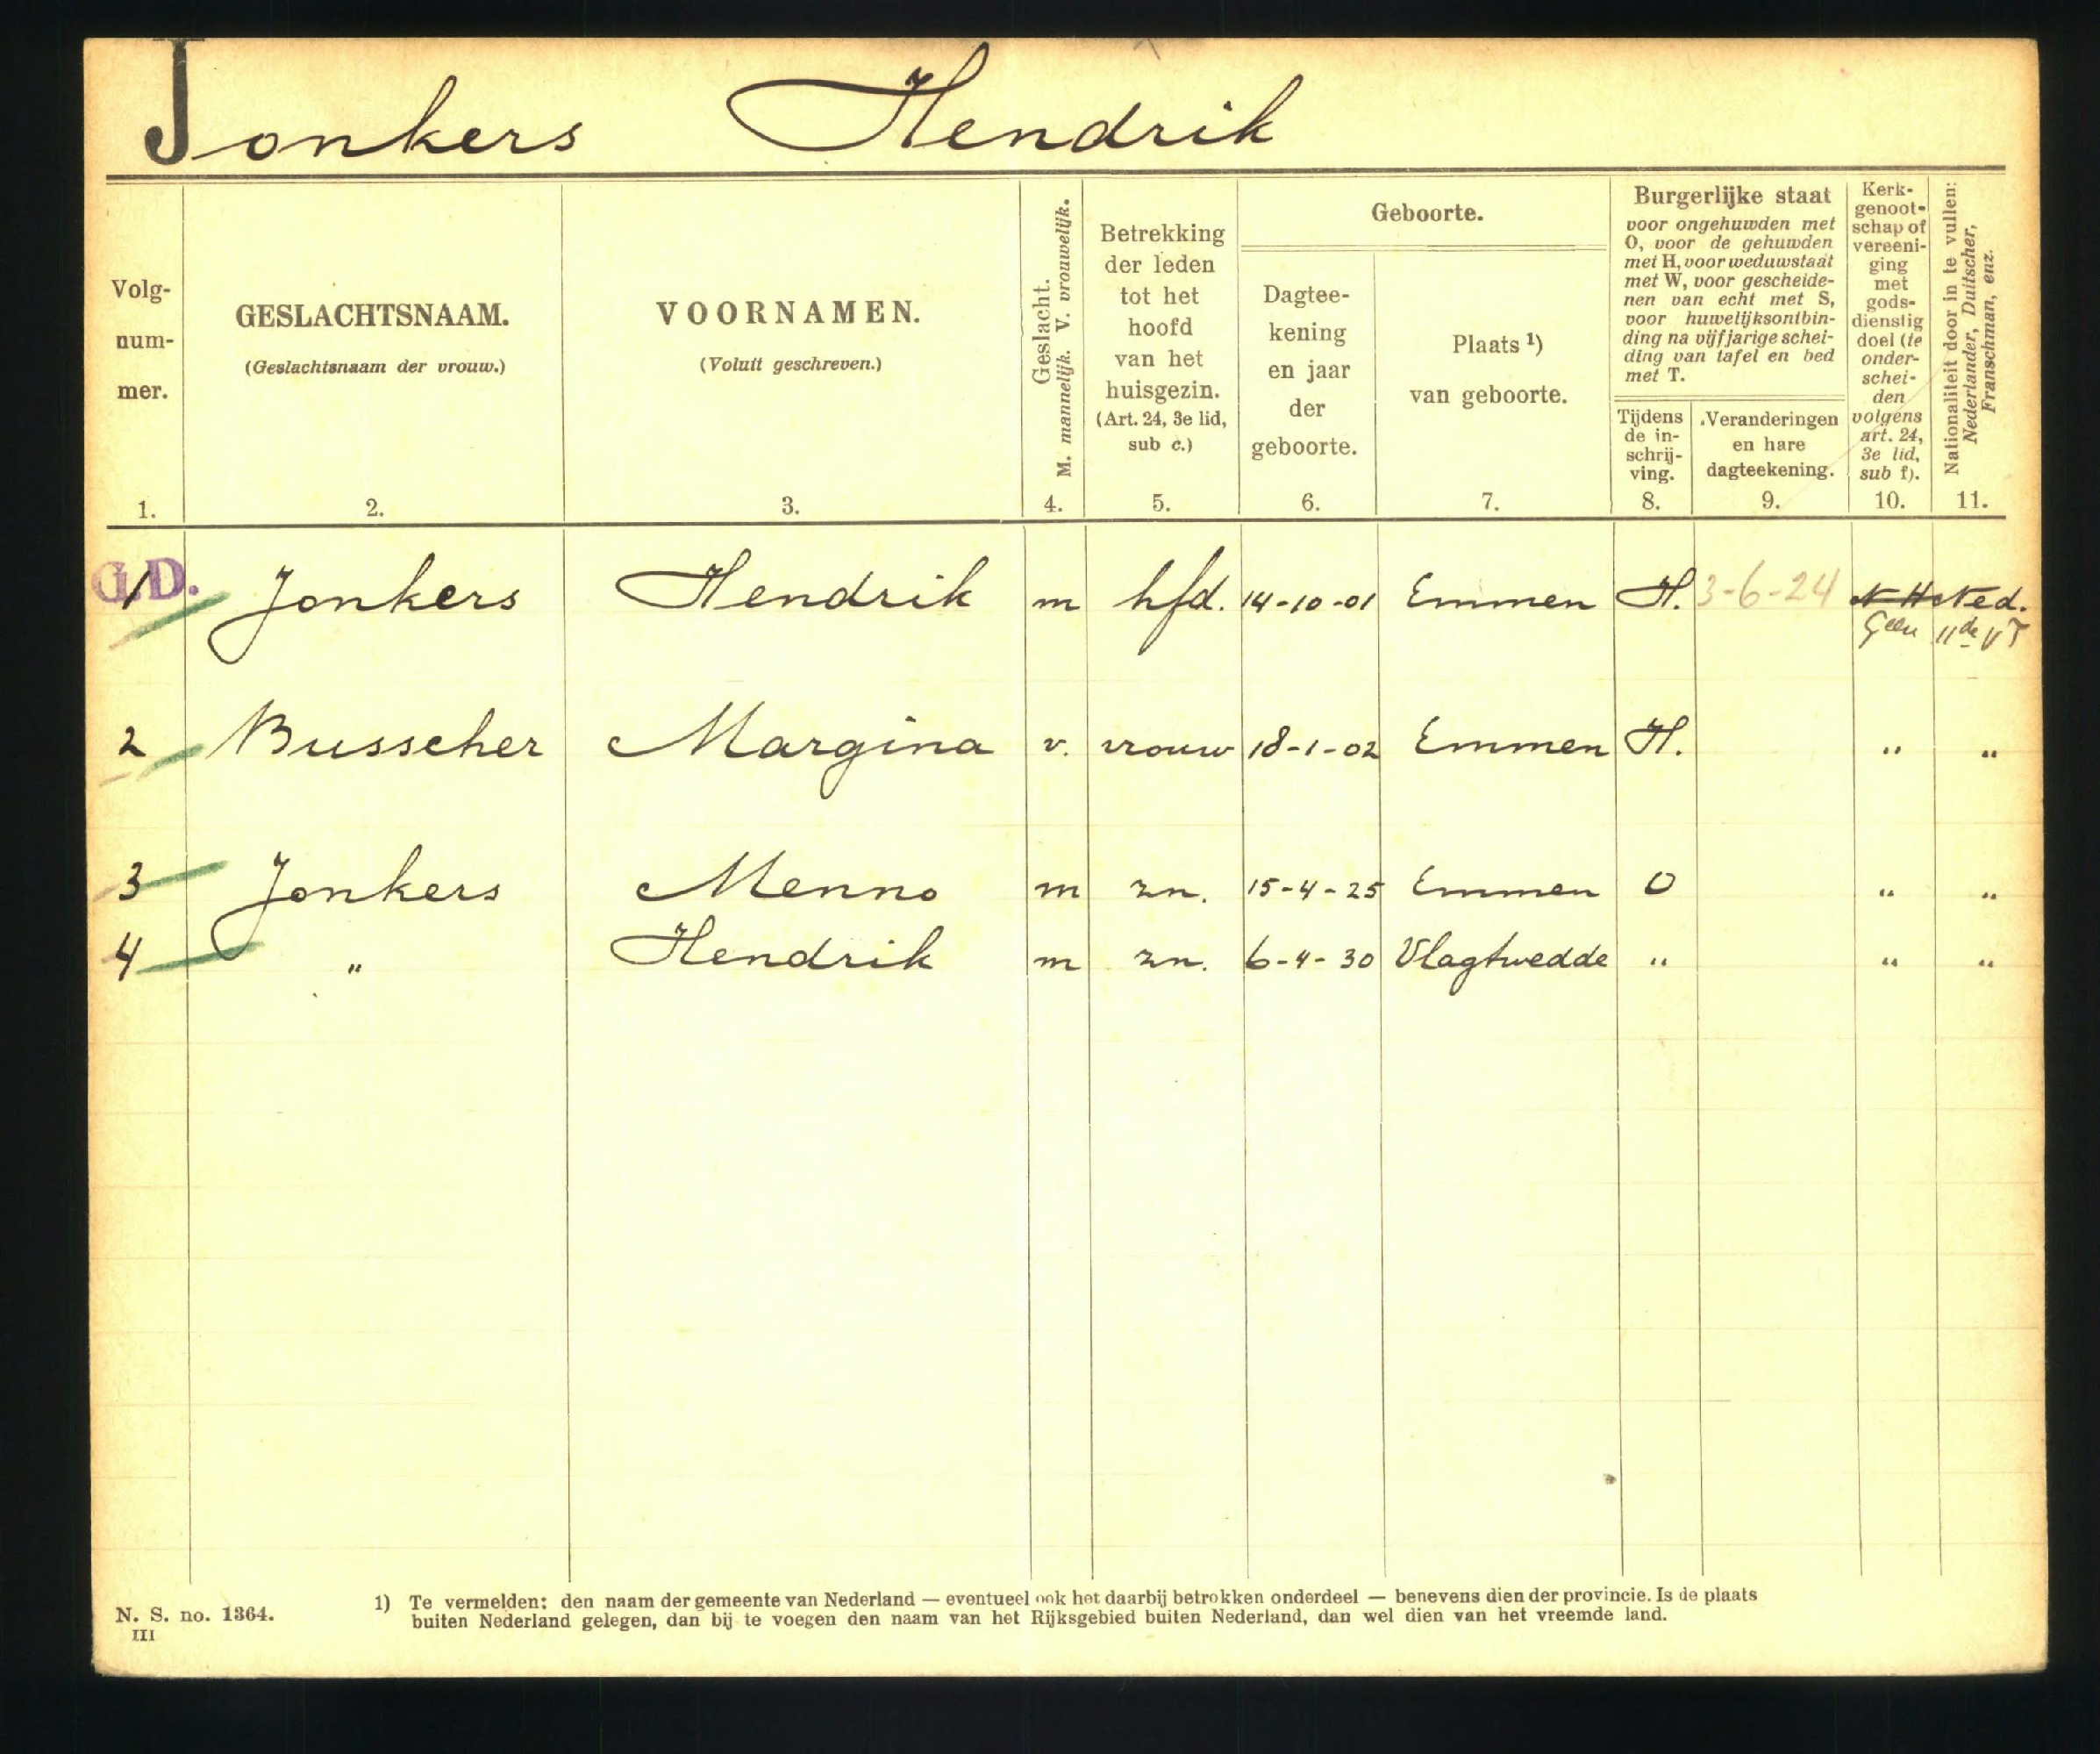 Jonkers Hendrik
Volg-
num-
mer.
1.
GESLACHTSNAAM.
(Geslachtsnaam der vrouw.)
2.
VOORNAMEN.
(Voluit geschreven.)
3.
Geslacht.
M. mannelijk. V. vrouwelijk.
4.
Betrekking
der leden
tot het
hoofd
van het
huisgezin.
(Art. 24, 3e lid,
sub c.)
5.
Geboorte.
Dagtee-
kening
en jaar
der
geboorte.
6.
Plaats 1)
van geboorte.
7.
Burgerlijke staat
voor ongehuwden met
O, voor de gehuwden
met H, voor weduwstaat
met W, voor gescheide-
nen van echt met S,
voor huwelijksontbin-
ding na vijfjarige schei-
ding van tafel en bed
met T.
Tijdens
de in-
schrij-
ving.
8.
Veranderingen
en hare
dagteekening.
9.
Kerk-
genoot-
schap of
vereeni-
ging
met
gods-
dienstig
doel (te
onder-
schei-
den
volgens
art. 24,
3e lid,
sub f).
10.
Nationaliteit door in te vullen:
Nederlander, Duitscher,
Franschman, enz.
11.
G.D.
1 Jonkers Hendrik m hfd. 14-10-01 Emmen H. 3-6-24 N H Ned.
Geen
2 Busscher Margina v. vrouw 18-1-02 Emmen H. " "
3 Jonkers Menno m zn. 15-4-25 Emmen O " "
4 " Hendrik m zn. 6-4-30 Vlagtwedde " " "
N. S. no. 1364.
III
1) Te vermelden: den naam der gemeente van Nederland — eventueel ook het daarbij betrokken onderdeel — benevens dien der provincie. Is de plaats
buiten Nederland gelegen, dan bij te voegen den naam van het Rijksgebied buiten Nederland, dan wel dien van het vreemde land.